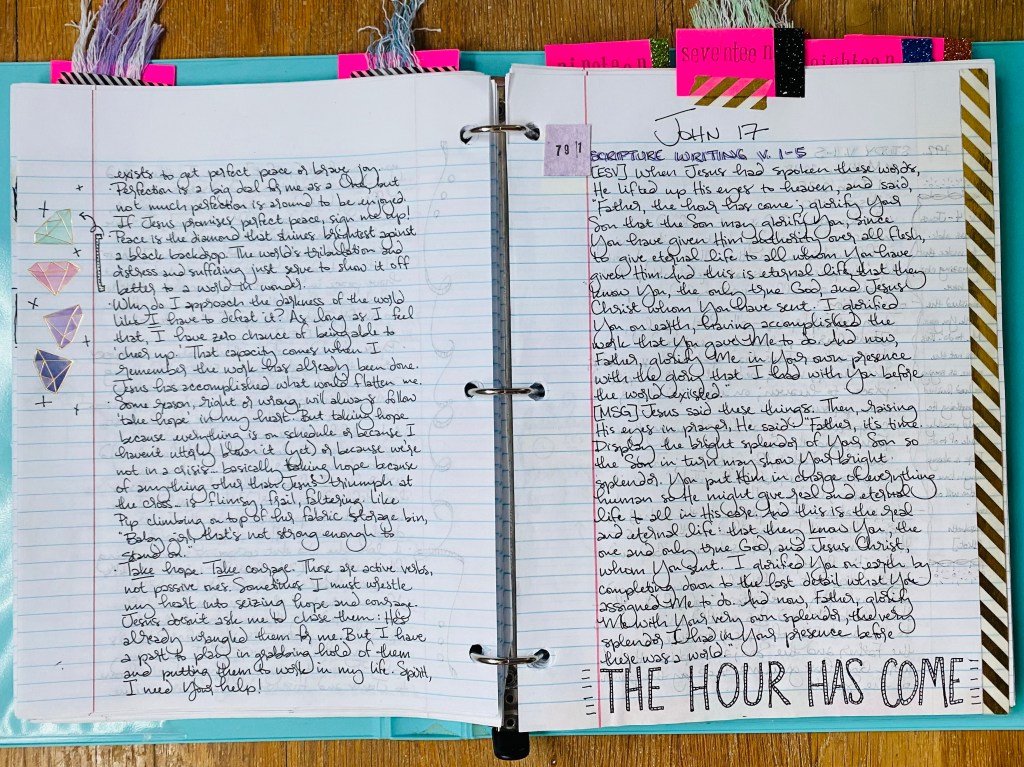 exists to get perfect peace or brave joy.
Perfection is a big deal for me as a One, but
not much perfection is around to be enjoyed.
If Jesus promises perfect peace, sign me up!
· Peace is the diamond that shines brightest against
a black backdrop. The world's tribulation and
distress and suffering just serve to show it off
better to a world in wonder.
· Why do I approach the darkness of the world
like I have to defeat it? As long as I feel
that, I have zero chance of being able to
"cheer up." That capacity comes when I
remember the work has already been done.
Jesus has accomplished what would flatten me.
· Some reason, right or wrong, will always follow
"take hope" in my heart. But taking hope
because everything is on schedule or because I
haven't utterly blown it (yet) or because we're
not in a crisis - basically taking hope because
of anything other than Jesus' triumph at
the cross - is flimsy, frail, faltering. Like
Pip climbing on top of her fabric storage bin,
"Baby girl, that's not strong enough to
stand on."
· Take hope. Take courage. Those are active verbs,
not passive ones. Sometimes I must wrestle
my heart into seizing hope and courage.
Jesus doesn't ask me to chase them: He's
already wrangled them for me. But I have
a part to play in grabbing hold of them
and putting them to work in my life. Spirit,
I need Your help!
nineteen
seventeen
eighteen
John 17
79 1
SCRIPTURE WRITING V. 1-5
[ESV] When Jesus had spoken these words,
He lifted up His eyes to heaven, and said,
"Father, the hour has come; glorify Your
Son that the Son may glorify You, since
You have given Him authority over all flesh,
to give eternal life to all whom You have
given Him. And this is eternal life, that they
know You, the only true God, and Jesus
Christ whom You have sent. I glorified
You on earth, having accomplished the
work that You gave Me to do. And now,
Father, glorify Me in Your own presence
with the glory that I had with You before
the world existed."
[MSG] Jesus said these things. Then, raising
His eyes in prayer, He said: "Father, it's time.
Display the bright splendor of Your Son so
the Son in turn may show Your bright
splendor. You put Him in charge of everything
human so He might give real and eternal
life to all in His care. And this is the real
and eternal life: that they know You, the
one and only true God, and Jesus Christ,
whom You sent. I glorified You on earth by
completing down to the last detail what You
assigned Me to do. And now, Father, glorify
Me with Your very own splendor, the very
splendor I had in Your presence before
there was a world."
THE HOUR HAS COME